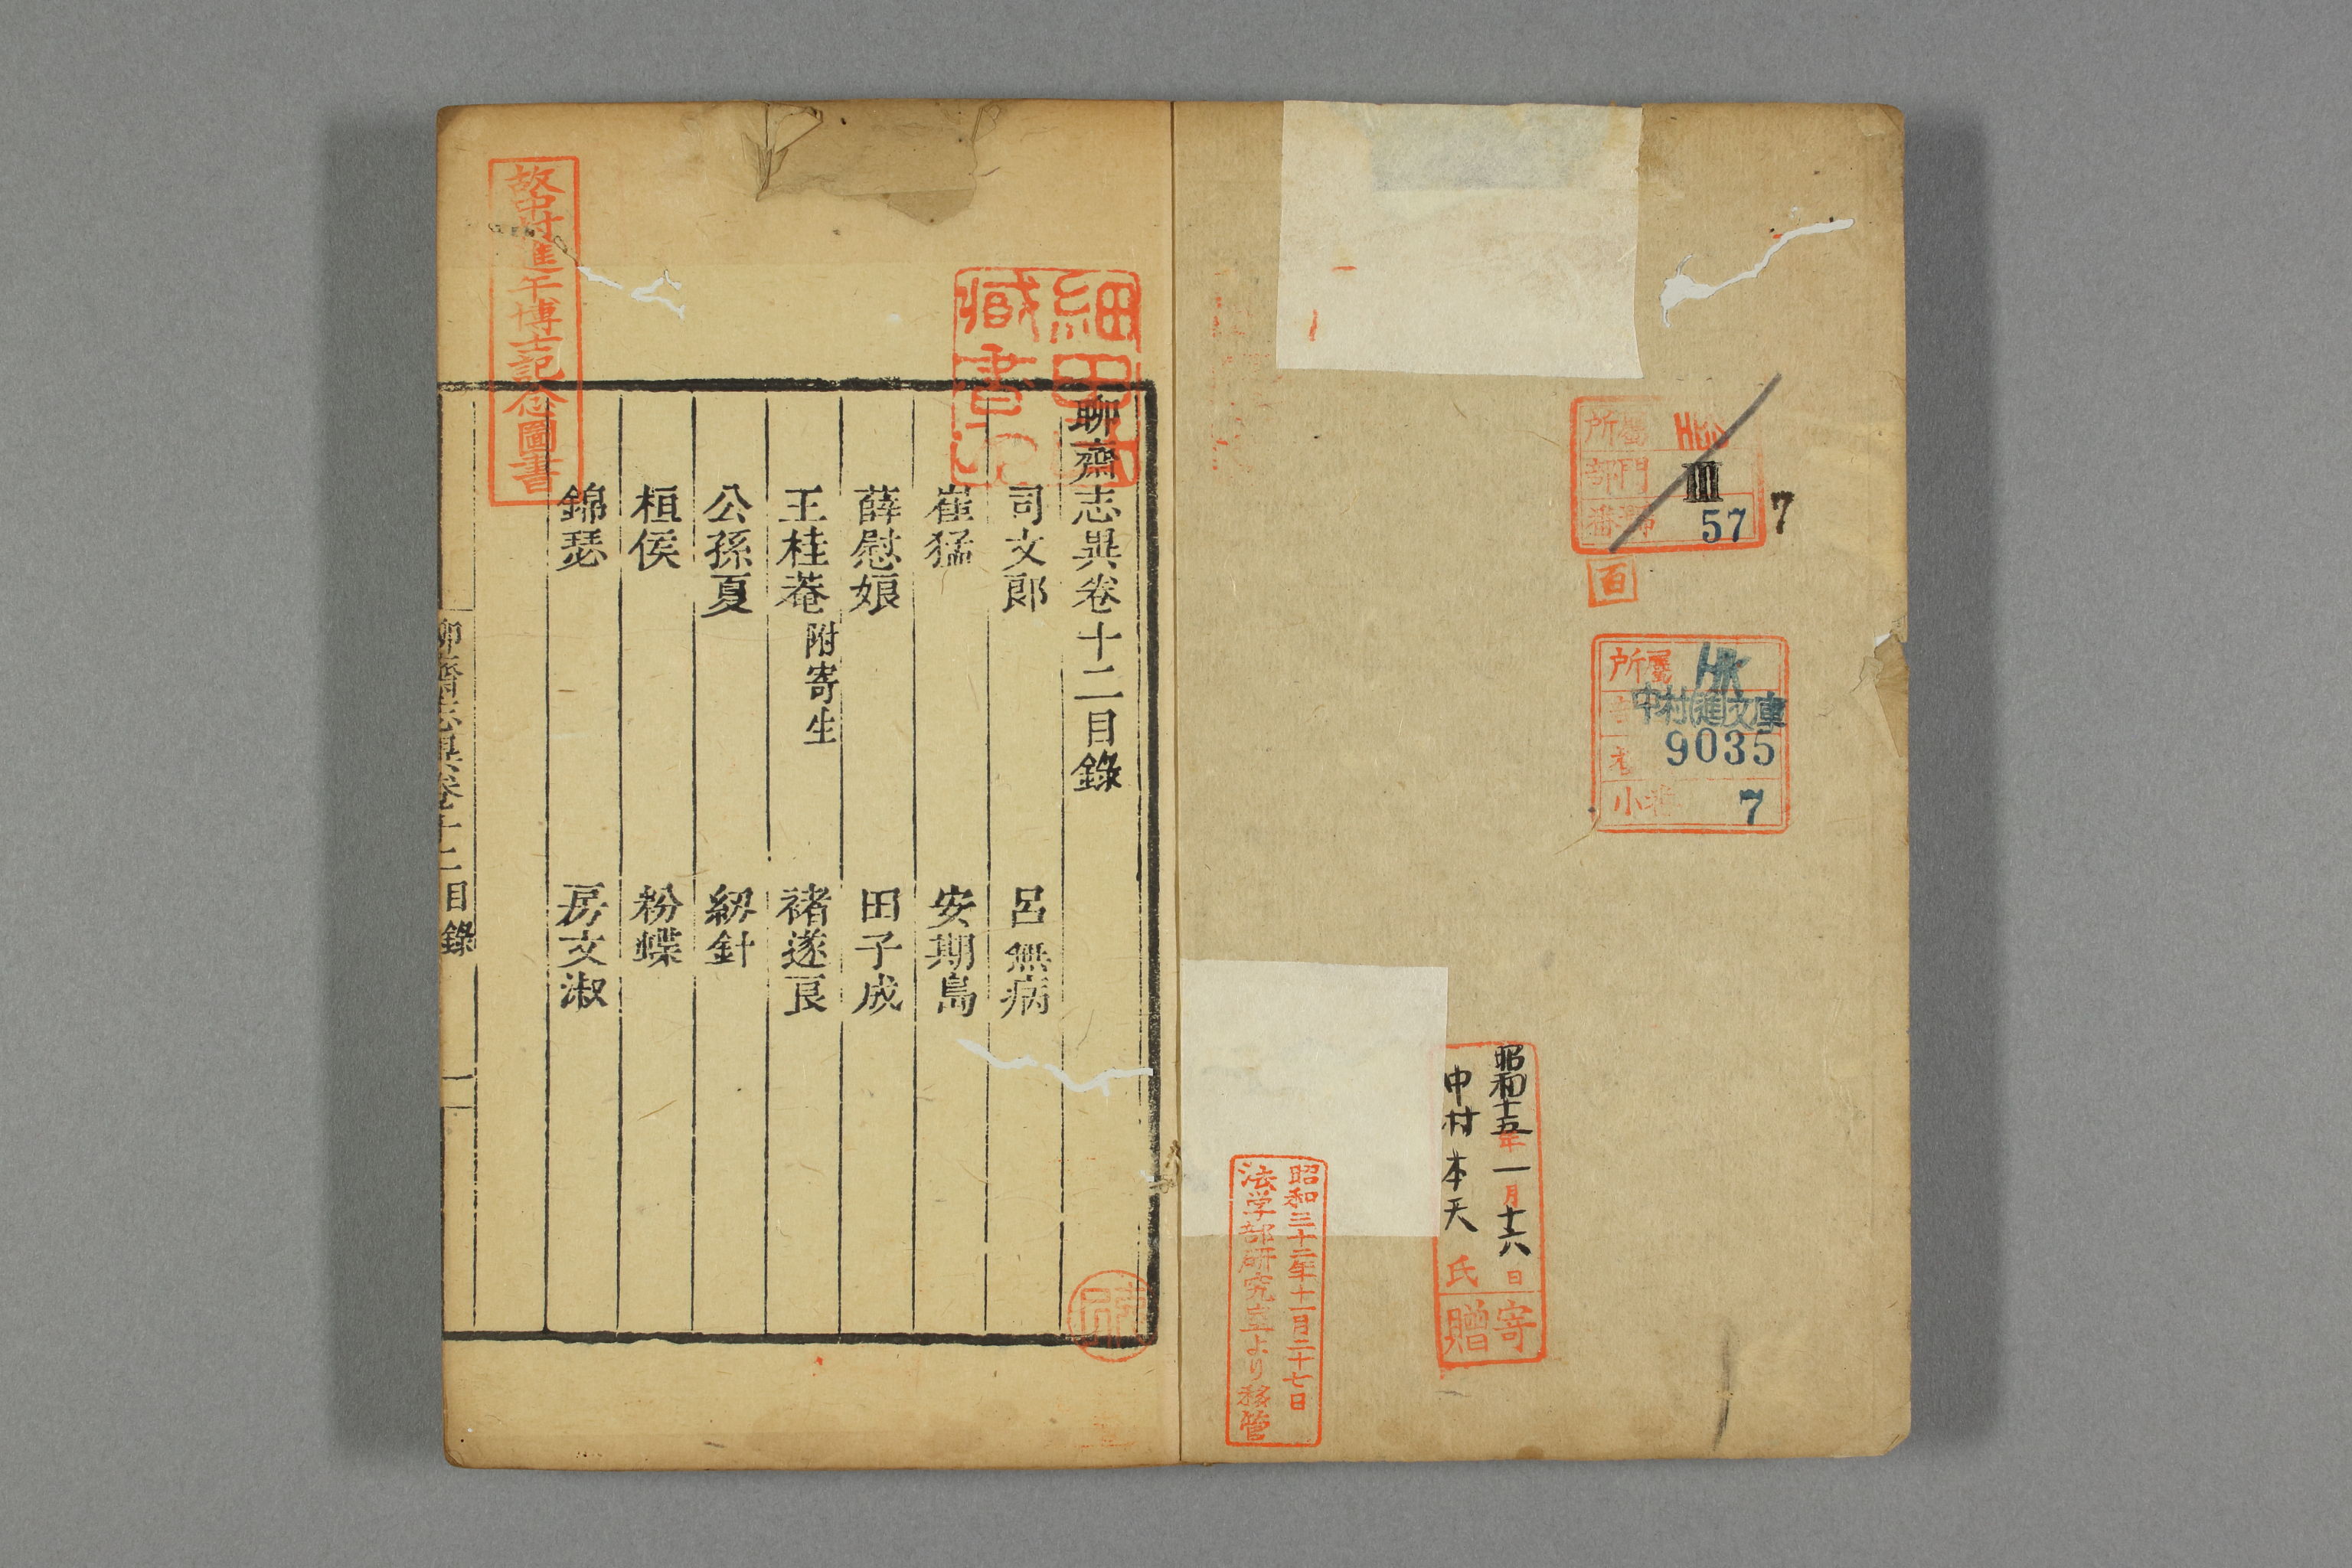 所屬
部門
III
57
7
百
所屬
HK
中村進文庫
9035
小番
7
昭和十五年一月十六日
中村本天氏
寄贈
昭和三十二年十一月二十七日
法学部研究室より移管
聊齋志異卷十二目錄
司文郎
呂無病
崔猛
安期島
薛慰娘
田子成
王桂菴附寄生
褚遂良
公孫夏
紉針
桓侯
粉蝶
錦瑟
房文淑
聊齋志異卷十二目錄
一
故中村進午博士記念圖書